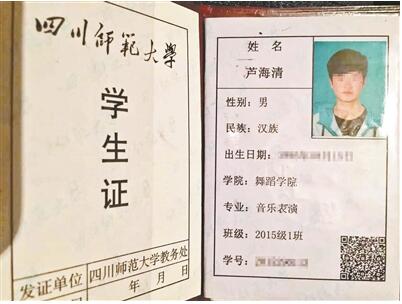 四川师范大学
学生证
发证单位
四川师范大学教务处
年 月 日
姓 名
芦海清
性别：男
民族：汉族
出生日期：
学院：舞蹈学院
专业：音乐表演
班级：2015级1班
学号：